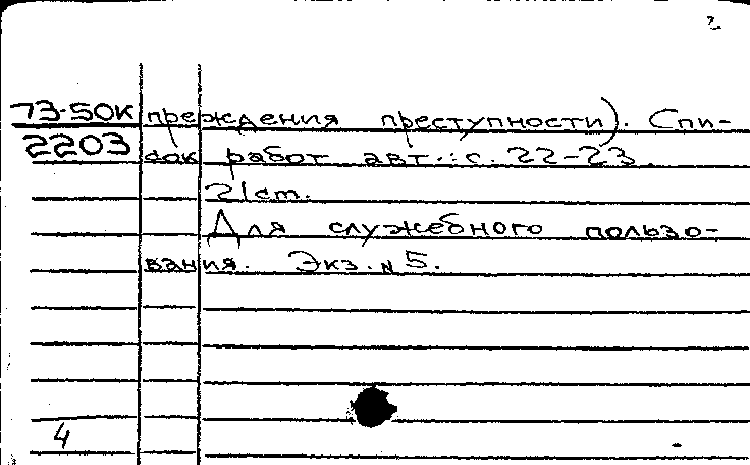 2
73-50к преждения преступности). Спи-
2203 сок работ авт.: с. 22-23.
21см.
Для служебного пользо-
вания. Экз. N 5.
4